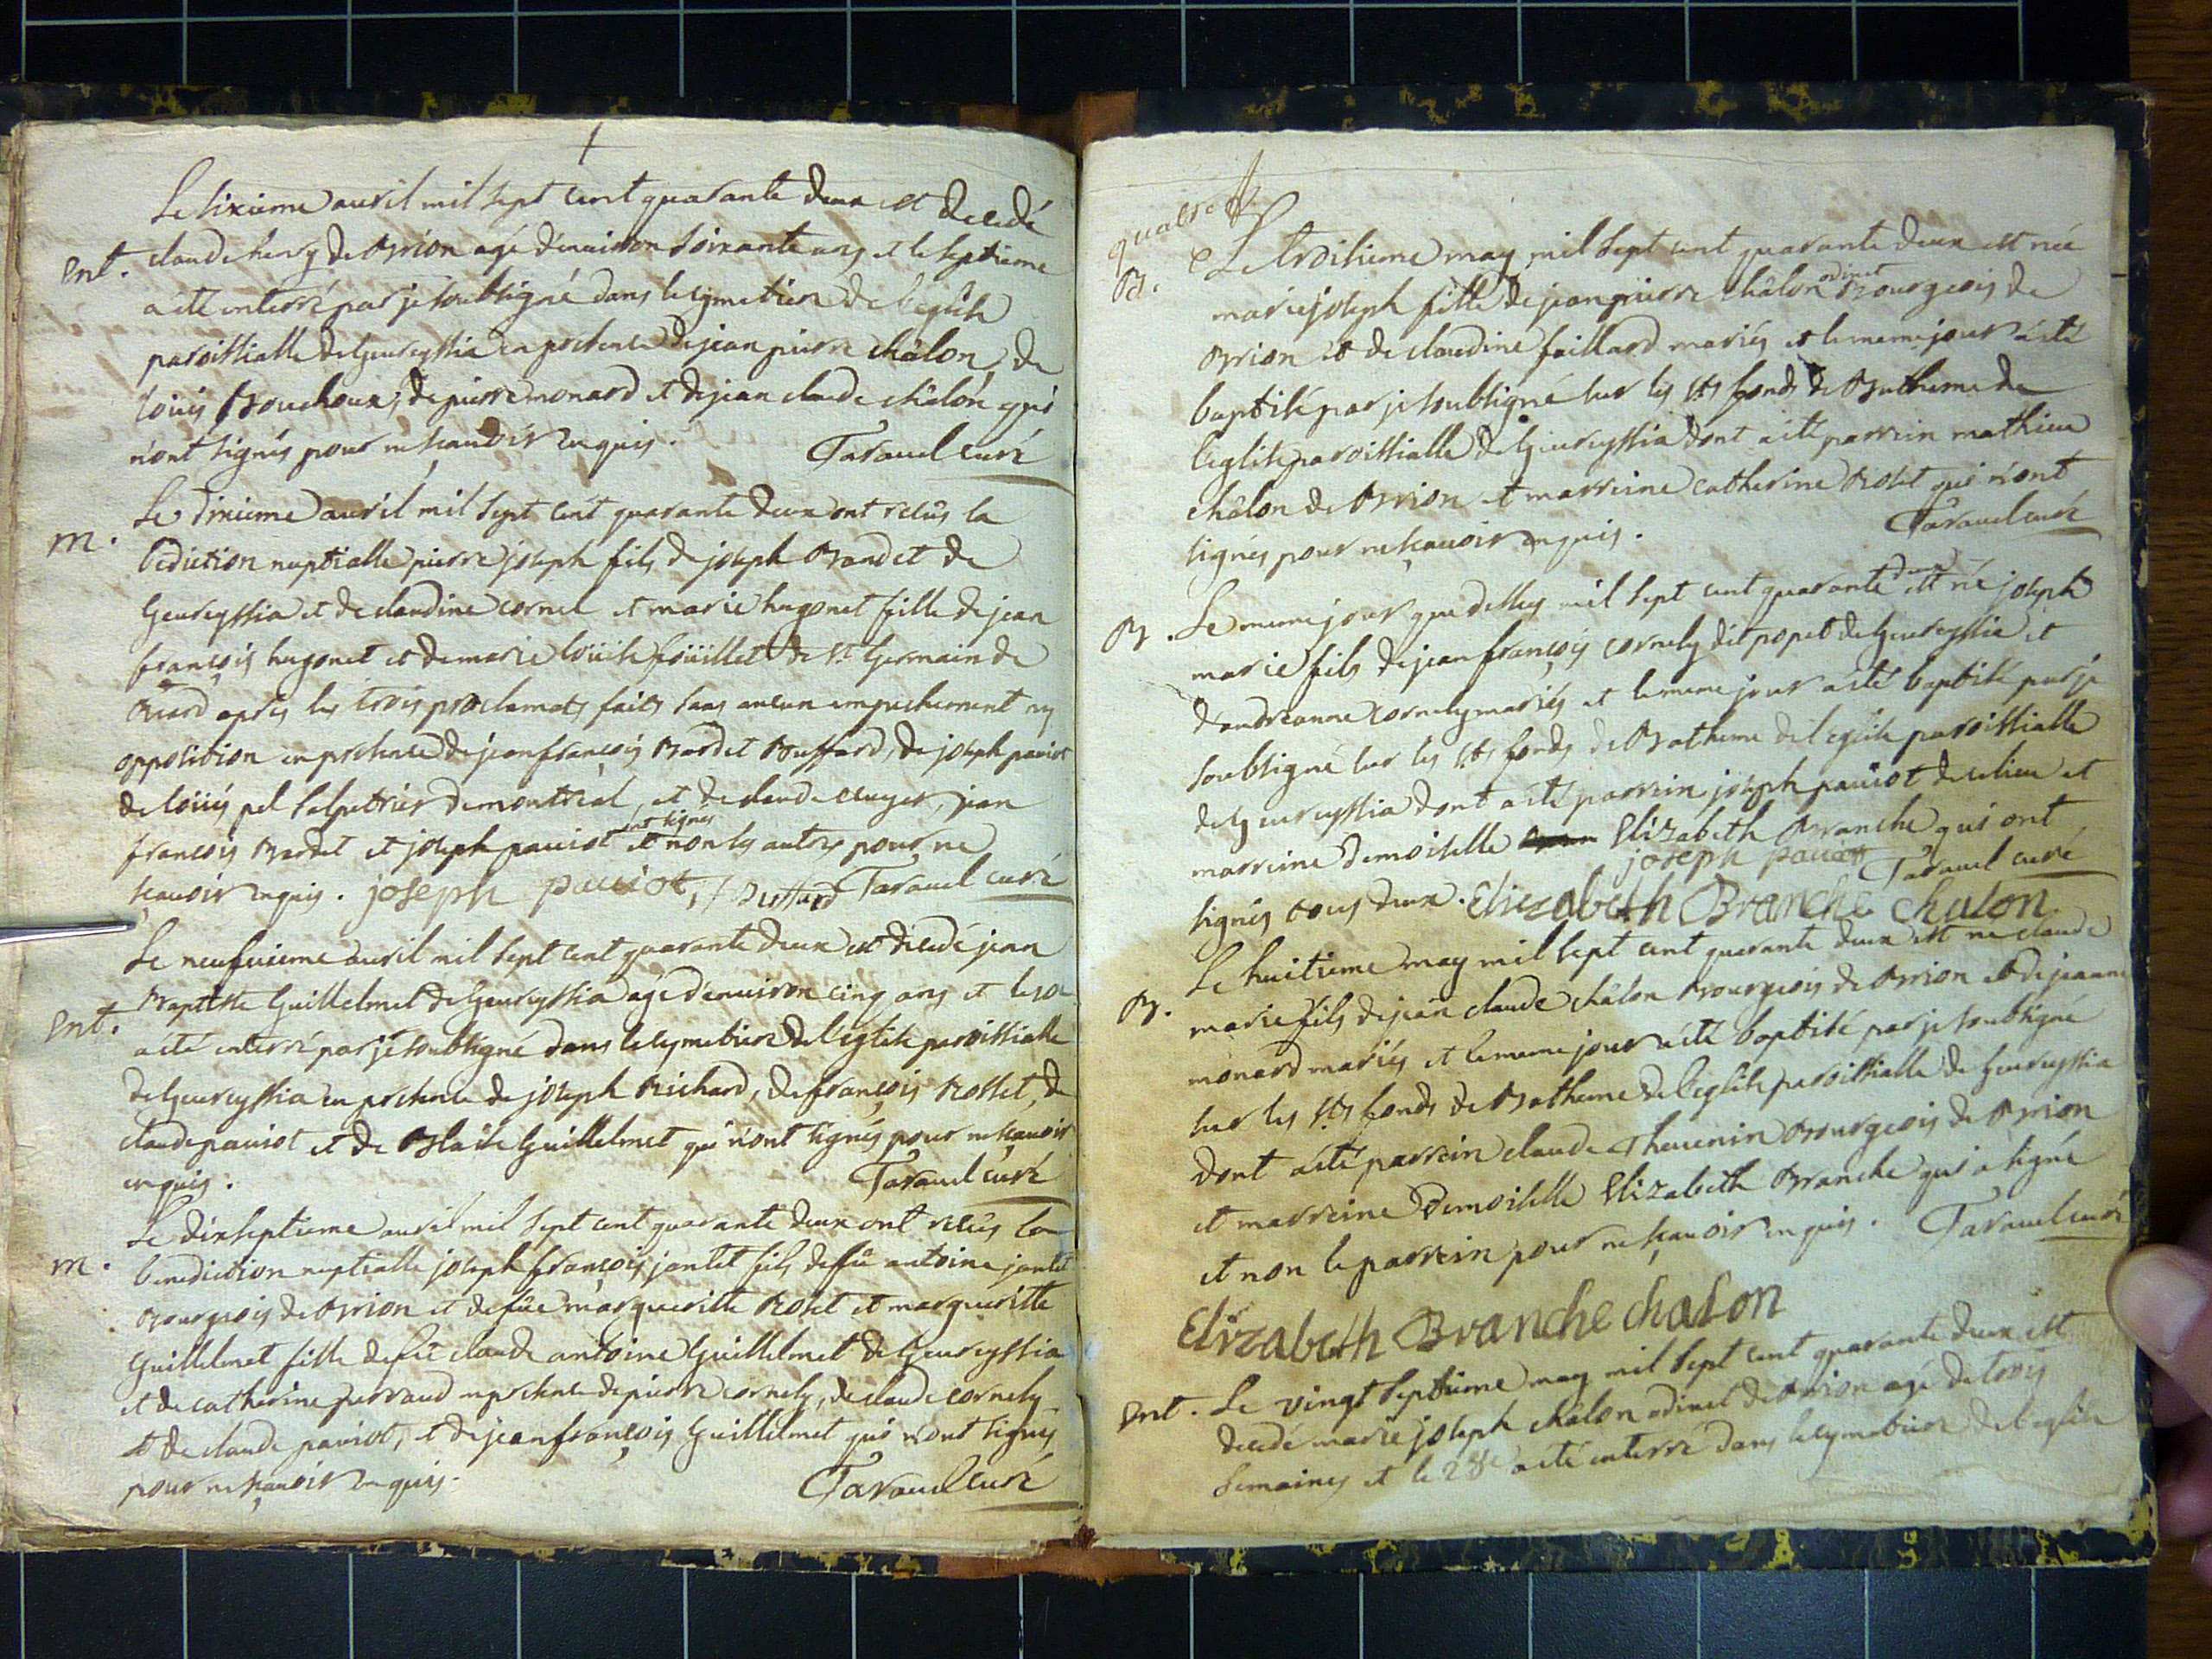 Le sixieme avril mil sept cent quarante deux est decedé
Ent. claude henry de Brion agé d'environ soixante ans et le septieme
a été enterré par je soubsigné dans le cymetiere de l'eglise
paroissialle de Geureyssia en presence de jean pierre châlon, de
loüis Bouchoux, de pierre monard et de jean claude châlon qui
n'ont signés pour ne sçauoir enquis. Tarauel curé
m. Le dixieme auril mil sept cent quarante deux ont recûs la
bediction nuptialle pierre joseph fils de joseph Bandet de
Geureyssia et de claudine cornel et marie hugonet fille de jean
françois hugonet et de marie loüise foüillet de St Germain de
Beard après les trois proclamats faits sans aucun empechement ny
opposition en presence de jean françois Bardet Buffard, de joseph pauiot
de loüis pel salpetrier de montréal, et de claude cluger, jean
françois Bardet et joseph pauiot ont signes et non les autres pour ne
sçauoir enquis. joseph pauiot, / Buffard Tarauel curé
Le neufuieme auril mil sept cent quarante deux est décedé jean
Ent. Baptiste Guillelmet de Geureyssia agé d'enuiron cinq ans et le 10e
a été enterré par je soubsigné dans le cymetiere de l'eglise paroissialle
de Geureyssia en presence de joseph Richard, de françois Rosset, de
claude pauiot et de Blaise Guillelmet qui n'ont signés pour ne sçauoir
enquis. Tarauel curé
m. Le dixseptieme auril mil sept cent quarante deux ont recûs la
benediction nuptialle joseph françois jantet fils de fû antoine jantet
Bourgeois de Brion et de fûe margueritte Roset et margueritte
Guillelmet fille de fû claude antoine Guillelmet de Geureyssia
et de catherine perraud en presence de pierre cornely, de claude cornely
et de claude pauiot, et de jean françois Guillelmet qui n'ont signés
pour ne sçauoir enquis. Tarauel curé
quatre
B. Le troisieme may mil sept cent quarante deux est née
marie joseph fille de jean pierre châlon odinet Bourgeois de
Brion et de claudine faillard mariés et le meme jour a été
baptisé par je soubsigné sur les sts fonds de Batheme de
l'eglise paroissialle de Geureyssia dont a été parrein mathieu
châlon de Brion et marreine catherine Roset qui n'ont
signés pour ne sçauoir enquis. Tarauel curé
B. Le meme jour que dessus mil sept cent quarante deux est né joseph
marie fils de jean françois cornely dit popet de Geureyssia et
d'andréanne cornely mariés et le meme jour a été baptisé par je
soubsigné sur les sts fonds de Batheme de l'eglise paroissialle
de Geureyssia dont a été parrein joseph pauiot de ce lieu et
marreine Demoiselle Elizabeth Branche qui ont
joseph pauiot Tarauel curé
signés tous deux. Elizabeth Branche chalon
B. Le huitieme may mil sept cent quarante deux est né claude
marie fils de jean claude châlon Bourgeois de Brion et de jeanne
monard mariés et le meme jour a été baptisé par je soubsigné
sur les sts fonds de Batheme de l'eglise paroissialle de Geureyssia
dont a été parrein claude Theuenin Bourgeois de Brion
et marreine Demoiselle Elizabeth Branche qui a signé
et non le parrein pour ne sçauoir enquis. Tarauel curé
Elizabeth Branche chalon
Ent. Le vingt septieme may mil sept cent quarante deux est
decedé marie joseph châlon odinet de Brion agé de trois
semaines et le 28e a été enterré dans le cymetiere de l'eglise